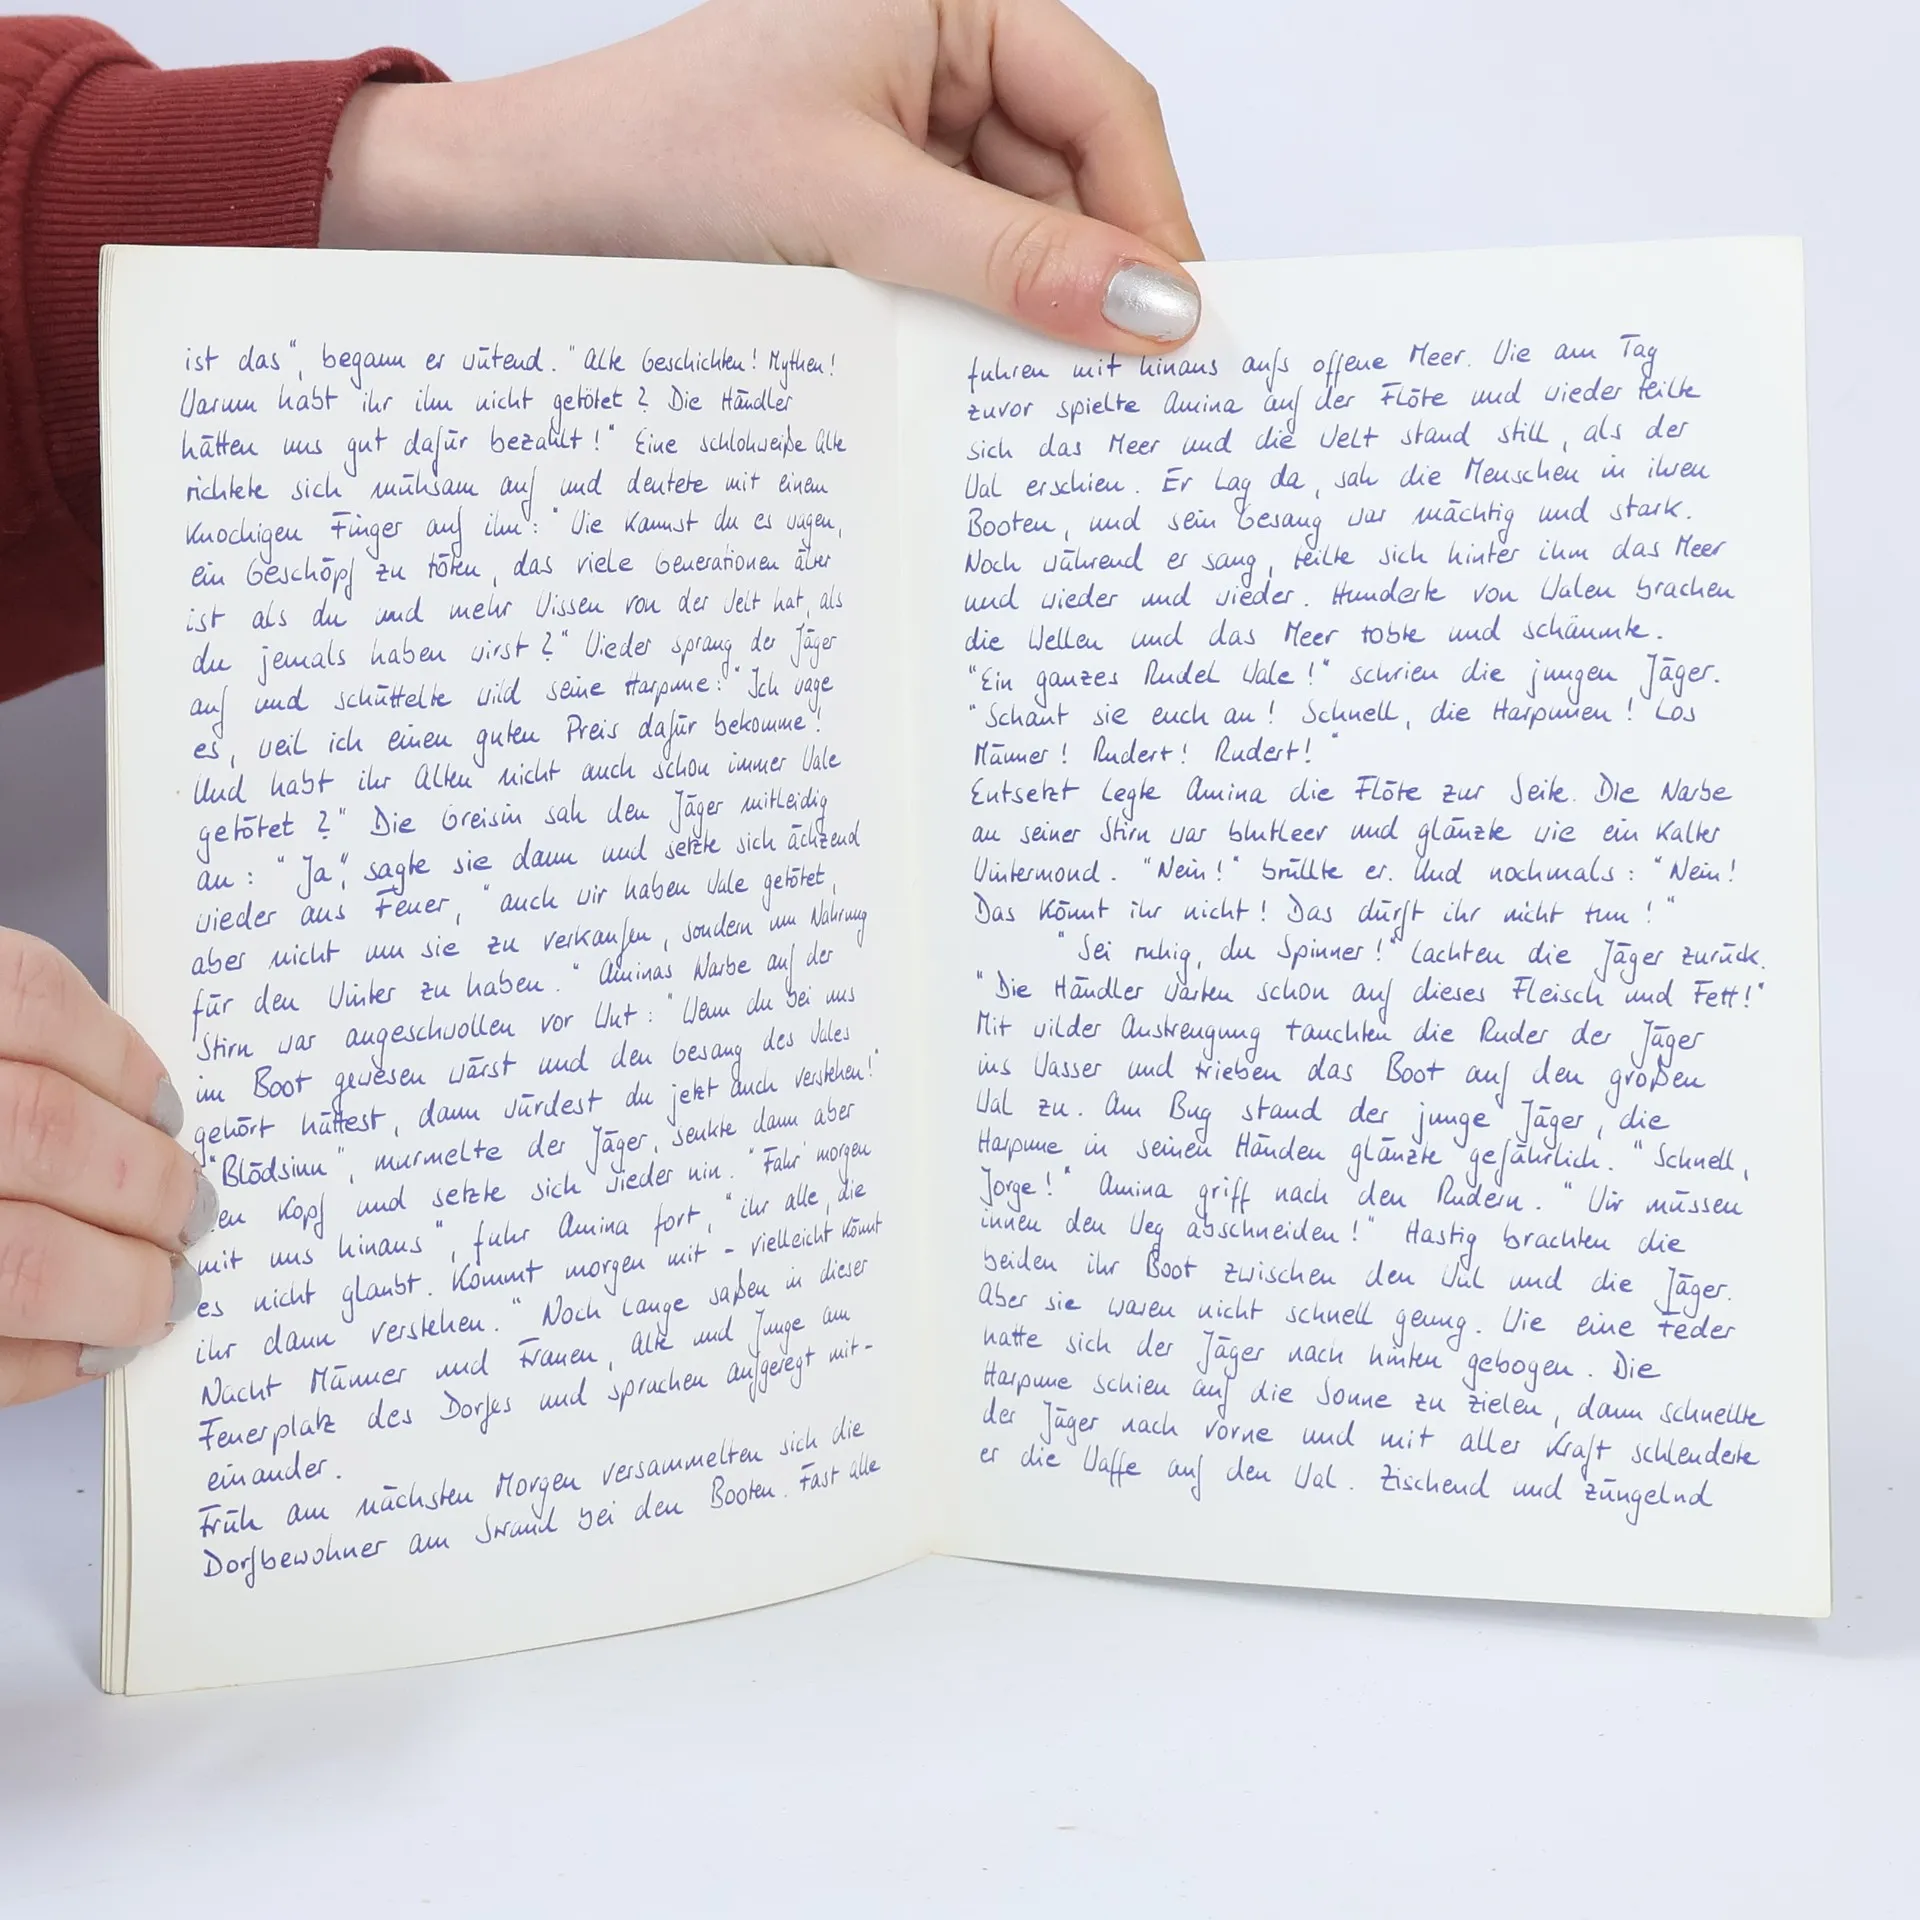 ist das", begann er wütend. "Alte Geschichten! Mythen!
Warum habt ihr ihn nicht getötet? Die Händler
hätten uns gut dafür bezahlt!" Eine schlohweiße Alte
richtete sich mühsam auf und deutete mit einem
knochigen Finger auf ihn: "Wie kannst du es wagen,
ein Geschöpf zu töten, das viele Generationen älter
ist als du und mehr Wissen von der Welt hat, als
du jemals haben wirst?" Wieder sprang der Jäger
auf und schüttelte wild seine Harpune: "Ich wage
es, weil ich einen guten Preis dafür bekomme!
Und habt ihr Alten nicht auch schon immer Wale
getötet?" Die Greisin sah den Jäger mitleidig
an: "Ja", sagte sie dann und setzte sich ächzend
wieder ans Feuer, "auch wir haben Wale getötet,
aber nicht um sie zu verkaufen, sondern um Nahrung
für den Winter zu haben." Aminas Narbe auf der
Stirn war angeschwollen vor Wut: "Wenn du bei uns
im Boot gewesen wärst und den Gesang des Wales
gehört hättest, dann würdest du jetzt auch verstehen!"
"Blödsinn", murmelte der Jäger, senkte dann aber
en Kopf und setzte sich wieder hin. "Fahr morgen
mit uns hinaus", fuhr Amina fort, "ihr alle, die
es nicht glaubt. Kommt morgen mit - vielleicht könnt
ihr dann verstehen." Noch lange saßen in dieser
Nacht Männer und Frauen, Alte und Junge am
Feuerplatz des Dorfes und sprachen aufgeregt mit-
einander.
Früh am nächsten Morgen versammelten sich die
Dorfbewohner am Strand bei den Booten. Fast alle
fuhren mit hinaus aufs offene Meer. Wie am Tag
zuvor spielte Amina auf der Flöte und wieder teilte
sich das Meer und die Welt stand still, als der
Wal erschien. Er lag da, sah die Menschen in ihren
Booten, und sein Gesang war mächtig und stark.
Noch während er sang, teilte sich hinter ihm das Meer
und wieder und wieder. Hunderte von Walen brachen
die Wellen und das Meer tobte und schäumte.
"Ein ganzes Rudel Wale!" schrien die jungen Jäger.
"Schaut sie euch an! Schnell, die Harpunen! Los
Männer! Rudert! Rudert!"
Entsetzt legte Amina die Flöte zur Seite. Die Narbe
an seiner Stirn war blutleer und glänzte wie ein kalter
Wintermond. "Nein!" brüllte er. Und nochmals: "Nein!
Das könnt ihr nicht! Das dürft ihr nicht tun!"
"Sei ruhig, du Spinner!" lachten die Jäger zurück.
"Die Händler warten schon auf dieses Fleisch und Fett!"
Mit wilder Anstrengung tauchten die Ruder der Jäger
ins Wasser und trieben das Boot auf den großen
Wal zu. Am Bug stand der junge Jäger, die
Harpune in seinen Händen glänzte gefährlich. "Schnell,
Jorge!" Amina griff nach den Rudern. "Wir müssen
ihnen den Weg abschneiden!" Hastig brachten die
beiden ihr Boot zwischen den Wal und die Jäger.
Aber sie waren nicht schnell genug. Wie eine Feder
hatte sich der Jäger nach hinten gebogen. Die
Harpune schien auf die Sonne zu zielen, dann schnellte
der Jäger nach vorne und mit aller Kraft schleuderte
er die Waffe auf den Wal. Zischend und züngelnd